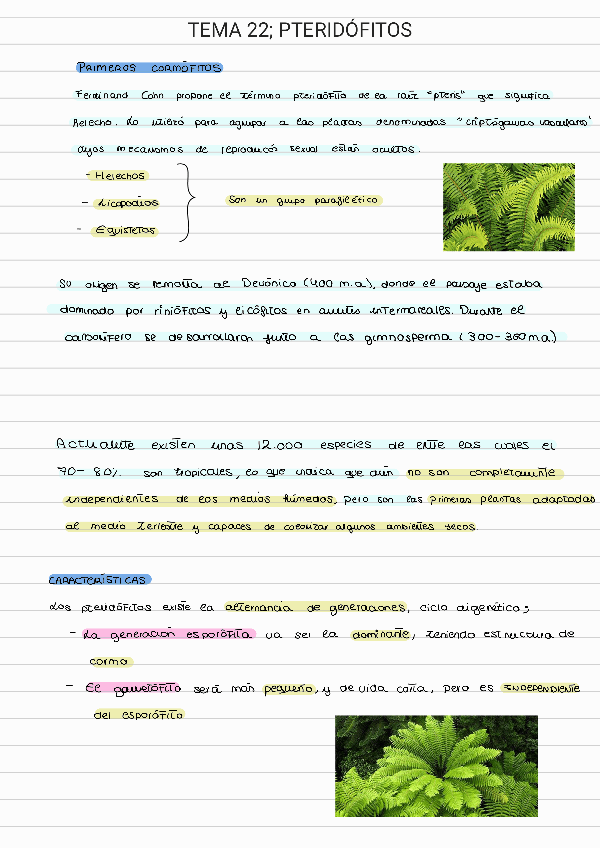 TEMA 22; PTERIDÓFITOS
PRIMEROS CORMÓFITOS
Ferdinand Cohn propone el término pteridófito de la raíz "pteris" que significa
helecho. Lo utilizó para agrupar a las plantas denominadas "criptógamas vasculares"
cuyos mecanismos de reproducción sexual están ocultos.
- Helechos
- Licopodios
- Equisetos
Son un grupo parafilético
Su origen se remonta al Devónico (400 m.a), donde el paisaje estaba
dominado por riniófitos y licófitos en intermareales. Durante el
carbonífero se desarrollaron junto a las gimnosperma (300-360ma)
Actualmente existen unas 12.000 especies de entre las cuales el
70-80% son tropicales, lo que indica que aún no son completamente
independientes de los medios húmedos, pero son las primeras plantas adaptadas
al medio terrestre y capaces de colonizar algunos ambientes secos.
CARACTERÍSTICAS
Los pteridófitos existe la alternancia de generaciones, ciclo digenético;
- La generación esporófita va ser la dominante, teniendo estructura de
cormo
- El gametófito será más pequeño, y de vida corta, pero es INDEPENDIENTE
del esporófito